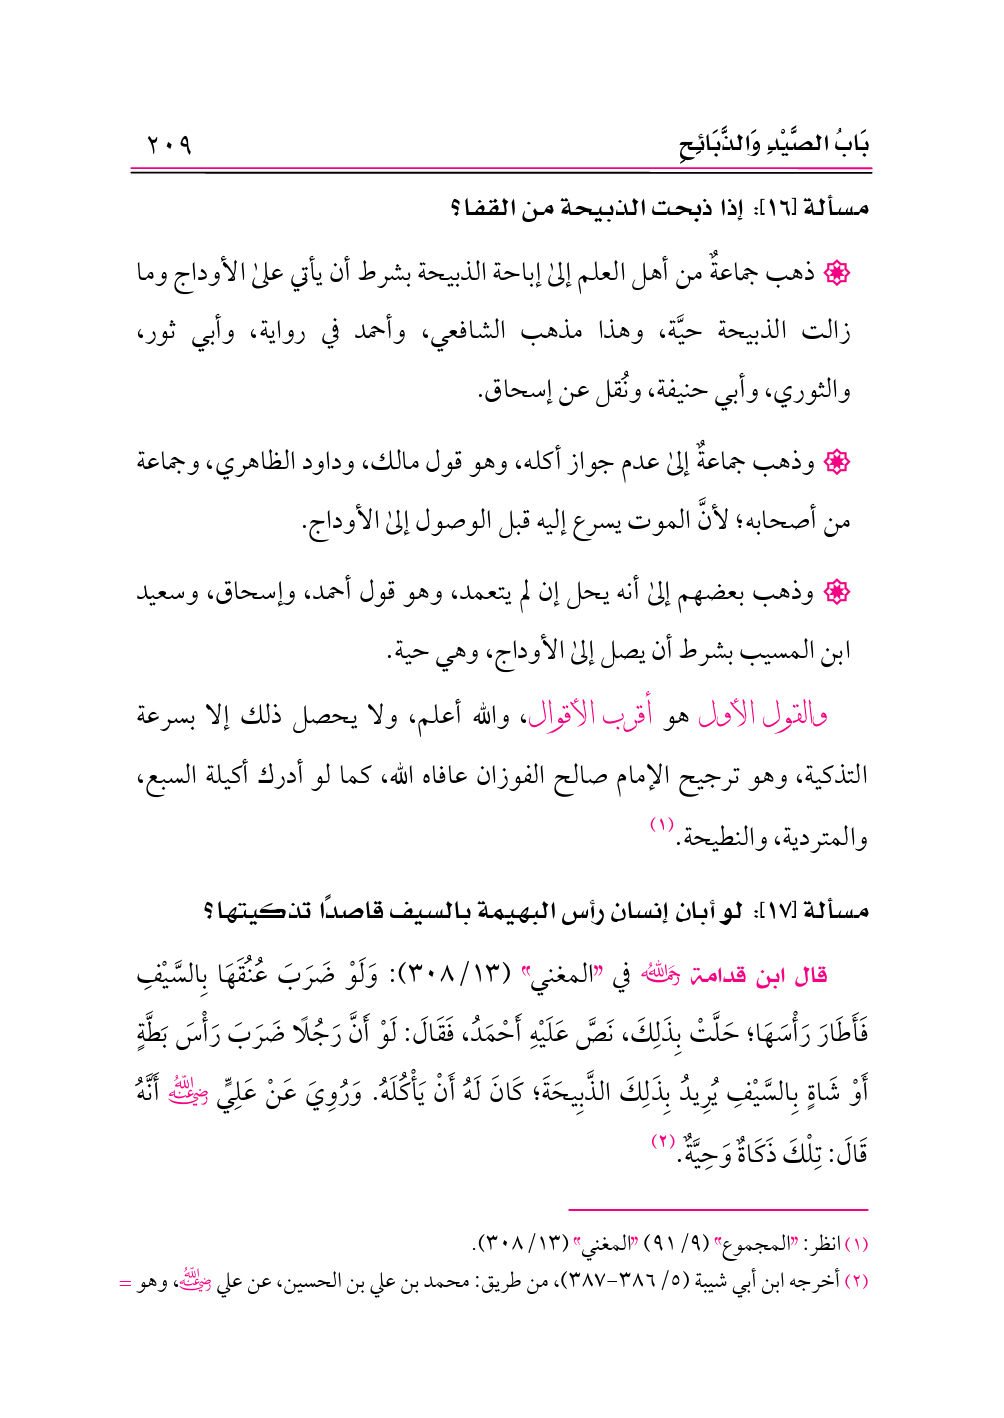 بَابُ الصَّيْدِ وَالذَّبَائِحِ ٢٠٩
مسألة [١٦]: إذا ذبحت الذبيحة من القفا؟
ذهب جماعةٌ من أهل العلم إلىٰ إباحة الذبيحة بشرط أن يأتي علىٰ الأوداج وما
زالت الذبيحة حيَّة، وهذا مذهب الشافعي، وأحمد في رواية، وأبي ثور،
والثوري، وأبي حنيفة، ونُقل عن إسحاق.
وذهب جماعةٌ إلىٰ عدم جواز أكله، وهو قول مالك، وداود الظاهري، وجماعة
من أصحابه؛ لأنَّ الموت يسرع إليه قبل الوصول إلىٰ الأوداج.
وذهب بعضهم إلىٰ أنه يحل إن لم يتعمد، وهو قول أحمد، وإسحاق، وسعيد
ابن المسيب بشرط أن يصل إلىٰ الأوداج، وهي حية.
والقول الأول هو أقرب الأقوال، والله أعلم، ولا يحصل ذلك إلا بسرعة
التذكية، وهو ترجيح الإمام صالح الفوزان عافاه الله، كما لو أدرك أكيلة السبع،
والمتردية، والنطيحة.(١)
مسألة [١٧]: لو أبان إنسان رأس البهيمة بالسيف قاصدًا تذكيتها؟
قال ابن قدامة رحمه الله في "المغني" (١٣/ ٣٠٨): وَلَوْ ضَرَبَ عُنُقَهَا بِالسَّيْفِ
فَأَطَارَ رَأْسَهَا؛ حَلَّتْ بِذَلِكَ، نَصَّ عَلَيْهِ أَحْمَدُ، فَقَالَ: لَوْ أَنَّ رَجُلًا ضَرَبَ رَأْسَ بَطَّةٍ
أَوْ شَاةٍ بِالسَّيْفِ يُرِيدُ بِذَلِكَ الذَّبِيحَةَ؛ كَانَ لَهُ أَنْ يَأْكُلَهُ. وَرُوِيَ عَنْ عَلِيٍّ رضي الله عنه أَنَّهُ
قَالَ: تِلْكَ ذَكَاةٌ وَحِيَّةٌ.(٢)
(١) انظر: "المجموع" (٩/ ٩١) "المغني" (١٣/ ٣٠٨).
(٢) أخرجه ابن أبي شيبة (٥/ ٣٨٦-٣٨٧)، من طريق: محمد بن علي بن الحسين، عن علي رضي الله عنه، وهو =